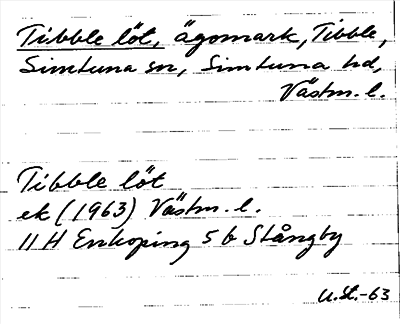 Tibble löt, ägomark, Tibble,
Simtuna sn, Simtuna hd,
Västm. l.
Tibble löt
ek (1963) Västm. l.
11 H Enköping 5 b Stångby
U.St.-63